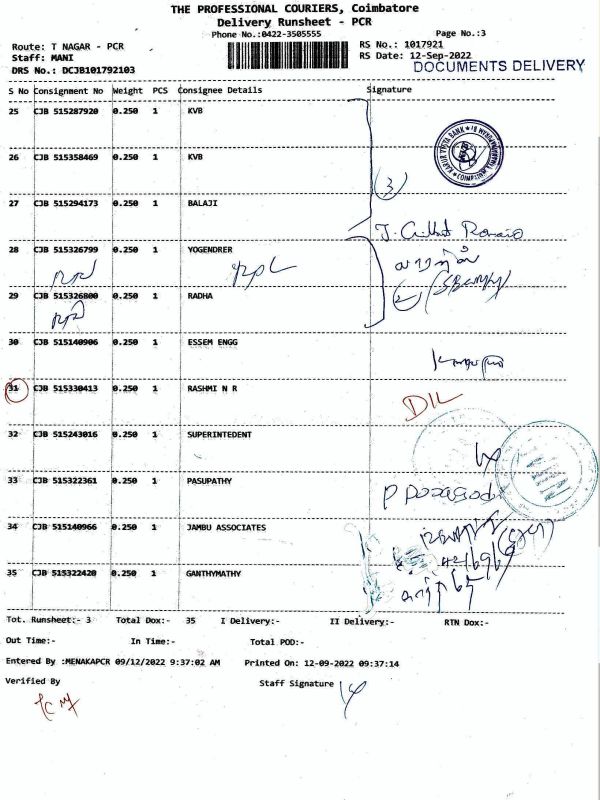 THE PROFESSIONAL COURIERS, Coimbatore
Delivery Runsheet - PCR
Phone No.:0422-3505555 Page No.:3
Route: T NAGAR - PCR RS No.: 1017921
Staff: MANI RS Date: 12-Sep-2022
DRS No.: DCJB101792103 DOCUMENTS DELIVERY
S No Consignment No Weight PCS Consignee Details Signature
25 CJB 515287920 0.250 1 KVB
26 CJB 515358469 0.250 1 KVB
(3)
27 CJB 515294173 0.250 1 BALAJI
28 CJB 515326799 0.250 1 YOGENDRER
29 CJB 515326800 0.250 1 RADHA
30 CJB 515140906 0.250 1 ESSEM ENGG
31 CJB 515330413 0.250 1 RASHMI N R
DIL
32 CJB 515243016 0.250 1 SUPERINTEDENT
33 CJB 515322361 0.250 1 PASUPATHY
34 CJB 515140966 0.250 1 JAMBU ASSOCIATES
35 CJB 515322420 0.250 1 GANTHYMATHY
Tot. Runsheet:- 3 Total Dox:- 35 I Delivery:- II Delivery:- RTN Dox:-
Out Time:- In Time:- Total POD:-
Entered By :MENAKAPCR 09/12/2022 9:37:02 AM Printed On: 12-09-2022 09:37:14
Verified By Staff Signature